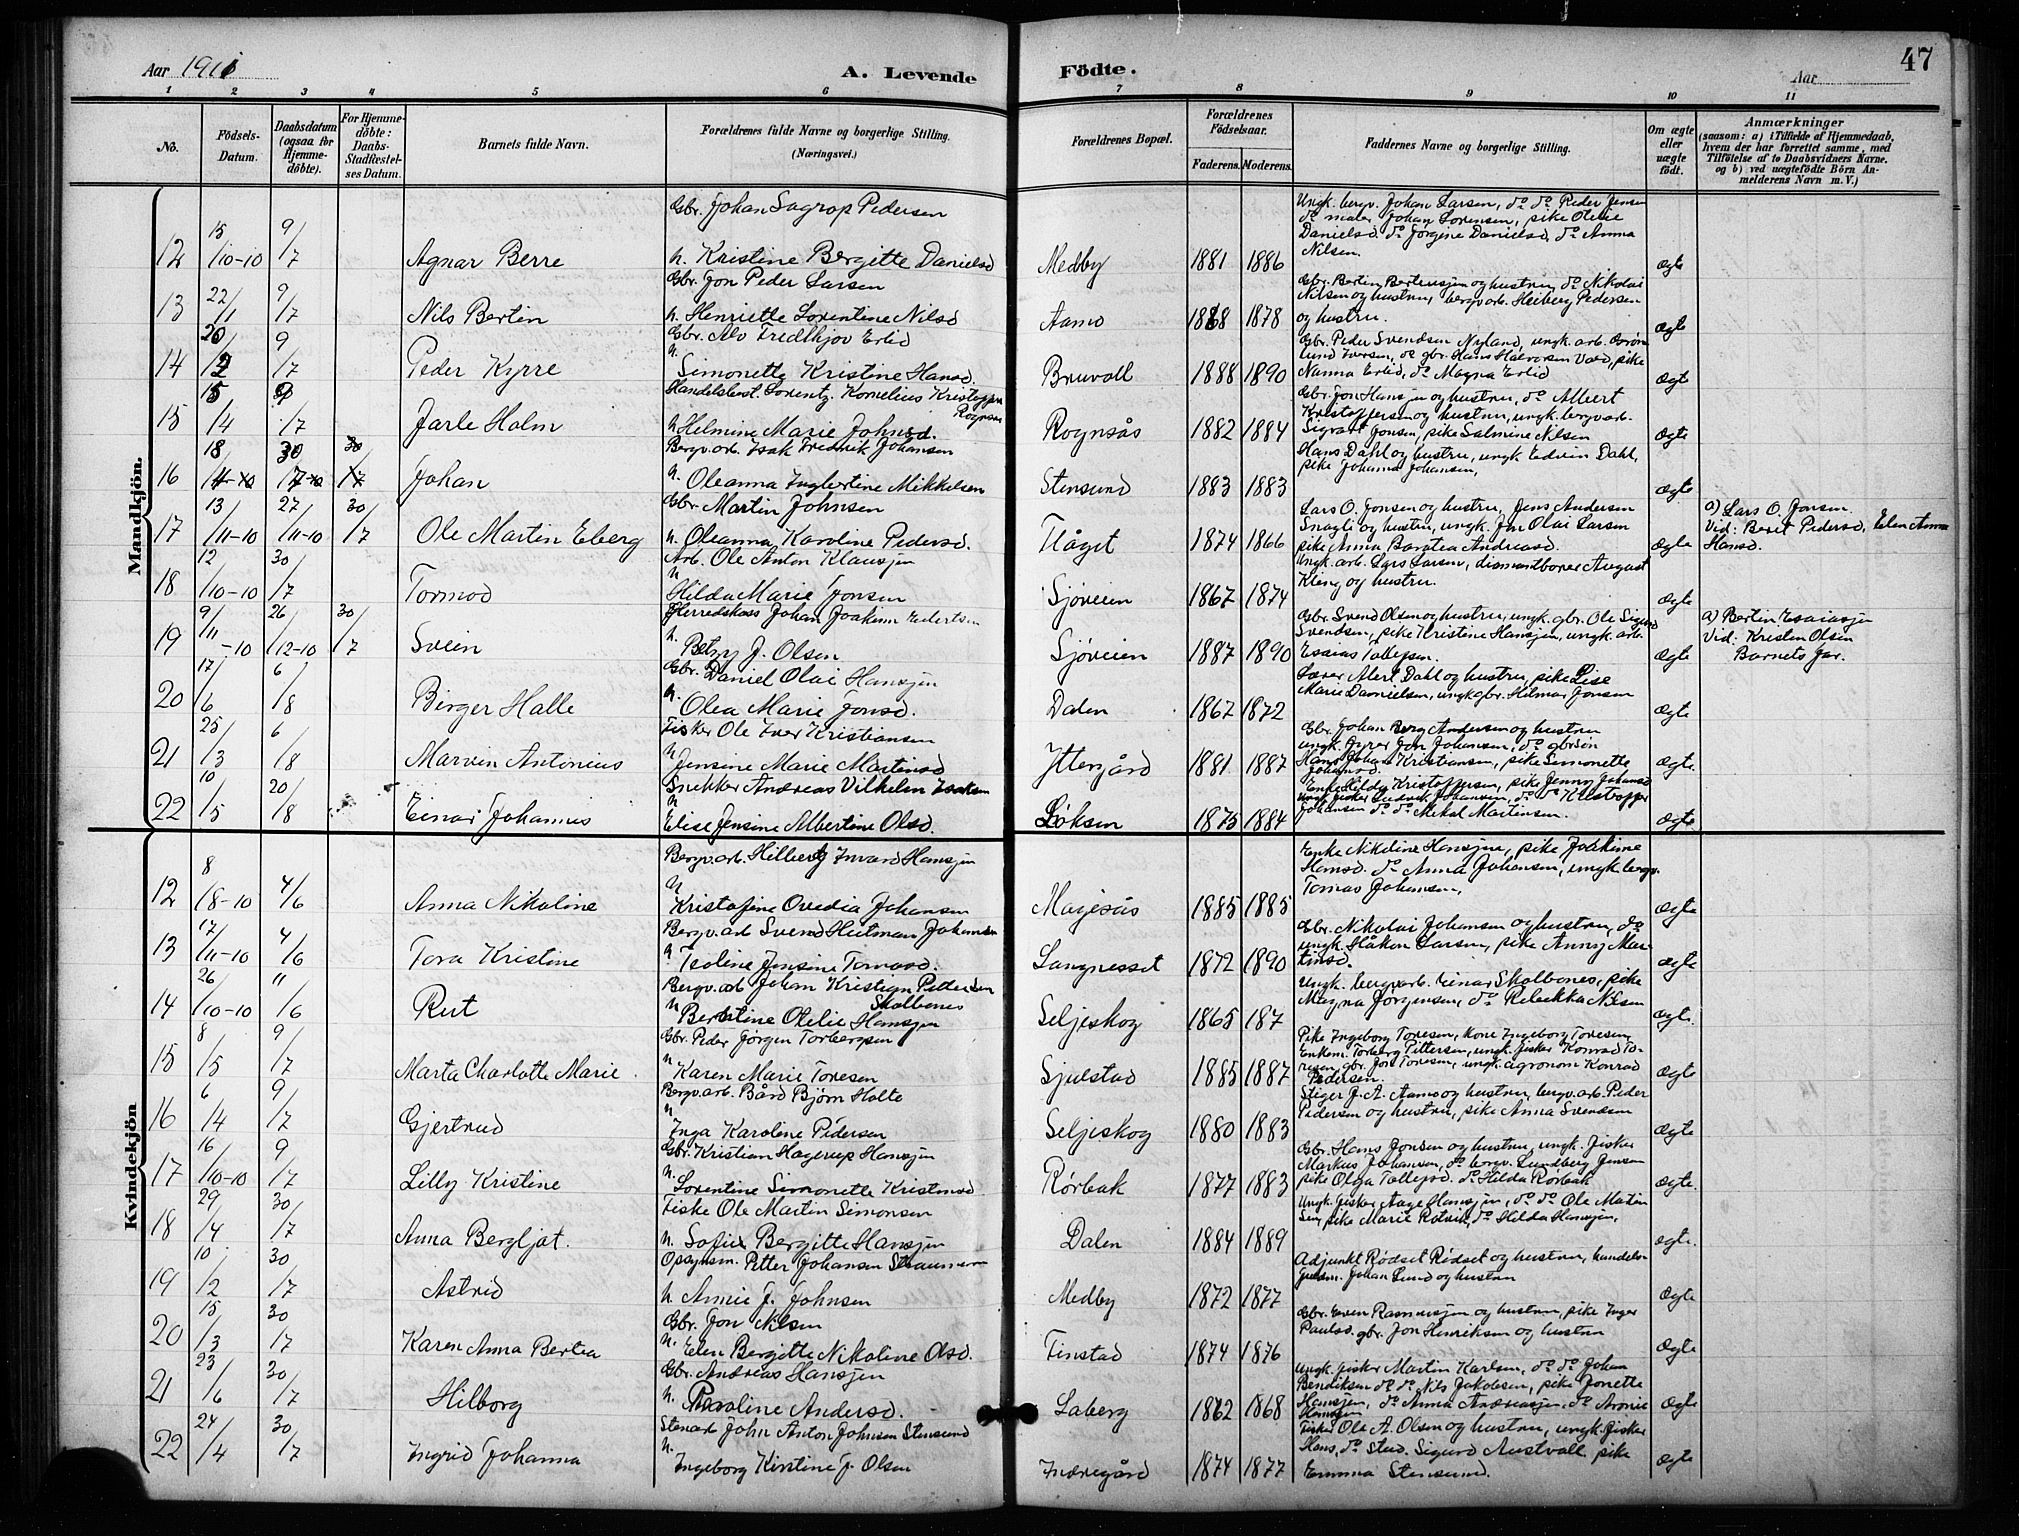 47
Aar 1911 A. Levende Födte. Aar
1 2 3 4 5 6 7 8 9 10 11
No. Födsels-Datum. Daabsdatum (ogsaa for Hjemme-döbte). For Hjemme-döbte: Daabs-Stadfæstel-ses Datum. Barnets fulde Navn. Forældrenes fulde Navne og borgerlige Stilling. (Næringsvei.) Forældrenes Bopæl. Forældrenes Födselsaar. Faderens. Moderens. Faddernes Navne og borgerlige Stilling. Om ægte eller uægte födt. Anmærkninger (saasom: a) i Tilfælde af Hjemmedaab, hvem der har forrettet samme, med Tilföielse af to Daabsvidners Navne. og b) ved uægtefödte Börn An-melderens Navn m. V.)
Mandkjön.
Gbr. Johan Sagrop Pedersen
Ungk. bergv. Johan Larsen, do do Peder Jensen
do maler Johan Sørensen, pike Oleue
Danielsd. do Jørgine Danielsd, do Anna
12 15/10-10 9/7 Agnar Berre h. Kristine Bergitte Danielsd Medby 1881 1886 Nilsen. ægte
Gbr. Jon Peder Larsen
Gbr. Bertin Bertinussen og hustru, do Nikolai
Nilsen og hustru, bergv.arb. Heiberg Pedersen
13 22/1 9/7 Nils Bertin h. Henriette Lorentine Nilsd Aamo 1868 1878 og hustru. ægte
Gbr. Alv Fredthjov Erlid
Gbr. Peder Svendsen Nyland, ungk. arb. Grøn
lund Iversen, do gbr. Hans Halvorsen Vold, pike
14 20/2 9/7 Peder Kyrre h. Simonette Kristine Hansd. Bruvoll 1888 1890 Nanna Erlid, do Magna Erlid ægte
Handelsbest. Lorentz Kornelius Kristoffer Rognsaa
Gbr. Jon Hansen og hustru, do Albert
Kristoffersen og hustru, ungk. bergv.arb.
15 15/4 9/7 Jarle Holm h. Helmine Marie Johnsd. Rognsås 1882 1884 Sigvart Jonsen, pike Salmine Nilsen ægte
Bergv. arb. Isak Fredrik Johansen
Hans Dahl og hustru, ungk. Edvin Dahl,
pike Johanna Johansen,
16 18/4 30/7 Johan h. Oleanna Ingbertine Mikkelsen Stensund 1883 1883 ægte
Gbr. Martin Johnsen
Lars O. Jonsen og hustru, Jens Andersen a) Lars O. Jonsen
Snagli og hustru, ungk. Jon Olai Larsen Vid: Beret Pedersd, Elen Anna
17 13/11-10 27/11-10 30/7 Ole Martin Elberg h. Oleanna Karoline Pedersd. Flåget 1874 1866 pike Anna Baratea Andreasd. ægte Hansd.
Arb. Ole Anton Klausen
Ungk. arb. Lars Larsen, diamantborer August
18 12/10-10 30/7 Tormod h. Hilda Marie Jonsen Sjøveien 1867 1874 Kling og hustru. ægte
Herredskass Johan Joakim Edvartsen
Gbr. Svend Olsen og hustru, ungk. gbr. Ole Sigurd a) Bertin Esaiassen
Svendsen, pike Kristine Hansen, ungk. arb. Vid: Kristen Olsen
19 9/11-10 26/12-10 30/7 Svein h. Betzy J. Olsen Sjøveien 1887 1890 Esaias Tollefsen. ægte Barnets far.
Gbr. Daniel Olai Hansen
Lærer Alert Dahl og hustru, pike Lise
Marie Danielsen, ungk gbr. Hilmar Jonsen
20 17/6 6/8 Birger Halle h. Olea Marie Jonsd. Dalen 1867 1872 ægte
Fisker Ole Iver Kristiansen
Gbr. Johan Berg Andersen og hustru
ungk. fyrer Jon Johansen, do gbrsøn
21 25/3 6/8 Marvin Antonius h. Jensine Marie Martinsd Yttergård 1881 1887 Hans Johan Kristiansen, pike Simonette Johansd. ægte.
Snekker Andreas Vilhelm Isaksen
Enke Hilda Kristoffersen, pike Jenny Johansd
ungk fisker Ludvik Johansen, do do Kristoffer
22 10/5 20/8 Einar Johannes h. Elise Jensine Albertine Olsd. Løksen 1875 1884 Johansen do do Mikal Martinsen. ægte
Kvindekjön
Bergv. arb. Hilbert Invard Hansen
Enke Nikoline Hansen, pike Joakime
Hansd. do Anna Johansen, ungk. bergv.
12 8/8-10 4/6 Anna Nikoline h. Kristofine Ovedia Johansen Magesås 1885 1885 Tomas Johansen, ægte
Bergv. arb Svend Hutman Johansen
Gbr. Nikolai Johansen og hustru, do
ungk. Håkon Larsen, pike Anny Mar-
13 17/11-10 4/6 Tora Kristine h. Isoline Jensine Tomasd. Langnesset 1872 1890 tinsd. ægte
Bergv. arb Johan Kristian Pettersen Skalbones
Ungk. bergv.arb. Einar Skalbones, pike
14 26/10-10 "/6 Rut h. Berntine Otelie Hansen Seljeskog 1865 187 Magna Jørgensen, do Rebekka Nilsen ægte.
Gbr. Peder Jørgen Torbergsen
Pike Ingeborg Toresen, kone Ingeborg Toresen
Enkem. Torberg Pettersen, ungk. fisker Konrad To-
resen, gbr. Jon Toresen, ungk. agronom Konrad
15 8/5 9/7 Marta Charlotte Marie. h. Karen Marie Toresen Sjulstad 1885 1887 Pedersen. ægte
Bergv.arb. Bård Bjørn Holte
Stiger J. A. Aamo og hustru, bergv. arb. Peder
16 6/4 9/7 Gjertrud h. Inga Karoline Pedersen Seljeskog 1880 1883 Pedersen og hustru, pike Anna Svendsen ægte
Gbr. Kristian Hagerup Hansen
Gbr. Hans Jonsen og hustru, ungk. fisker
Markus Johansen, do bergv. Lundberg Jensen
17 16/10-10 9/7 Lilly Kristine h. Lorentine Simonette Kristensd Rørbak 1877 1883 pike Olga Tollefsd. do Hilda Rørbak ægte.
Fiske Ole Martin Simonsen
Ungk. fisker Aage Hansen, do do Ole Martin
18 29/4 30/7 Anna Bergljot. h. Sofie Bergitte Hansen Dalen 1884 1889 Sim, pike Marie Rotvik, do Hilda Hansen, ægte.
Opsynsm. Petter Johansen Straumsnes
Adjunkt Rødset Rødset og hustru, handelsv
19 10/2 30/7 Astrid h. Annie J. Johnsen Medby 1872 1877 Johan Lund og hustru ægte
Gbr. Jon Nilsen
Gbr. Even Rasmussen og hustru, pike Inger
20 15/3 30/7 Karen Anna Bertea h. Elen Bergitte Nikoline Olsd. Finstad 1874 1876 Paulsd. gbr. Jon Henriksen og hustru ægte
Gbr. Andreas Hansen
Ungk. fisker Martin Karlsen, do do Johan
Bendiksen do do Nils Jakobsen, pike Jonette
21 23/6 30/7 Hilborg h. Paroline Andersd. Laberg 1862 1868 Hansen, do Anna Andreassen, do Aronie Hansen ægte
Stenarb John Anton Johnsen Stensund
Fisker Ole A. Olsen og hustru, ungk. fisker
Hans, do Stud. Sigurd Austvoll, pike
22 24/4 30/7 Ingrid Johanna h. Ingeborg Kirstine J. Olsen Indregård 1874 1877 Emma Stensund. ægte